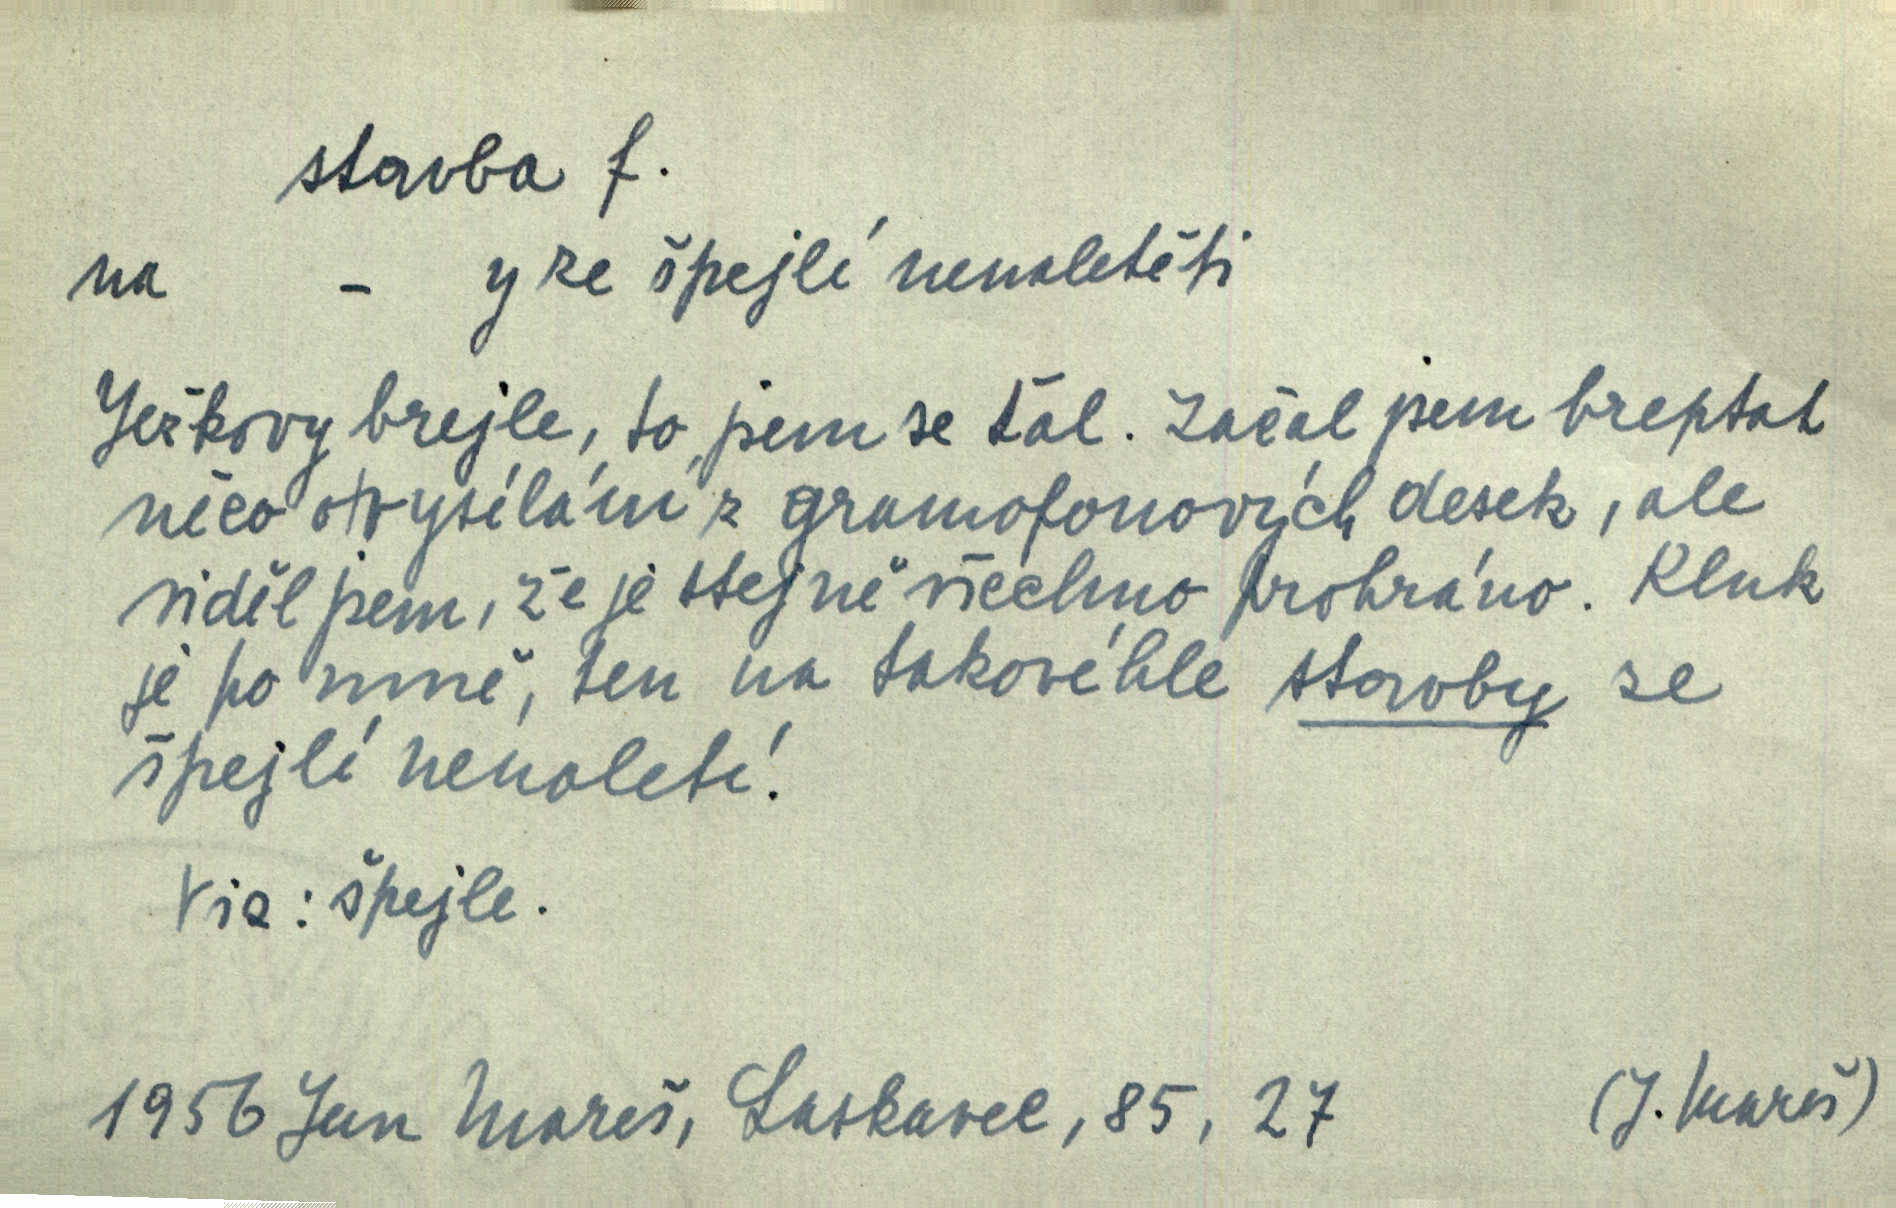 stavba f.
na - y ze špejlí nenaletěti
Ježkovy brejle, to jsem se tál. Začal jsem breptat
něco o vysílání z gramofonových desek, ale
viděl jsem, že je stejně všechno prohráno. Kluk
je po mně, ten na takovéhle stavby ze
špejlí nenaletí.
Viz: špejle.
1956 Jan Mareš, Laskavec, 85, 27 (J. Mareš)